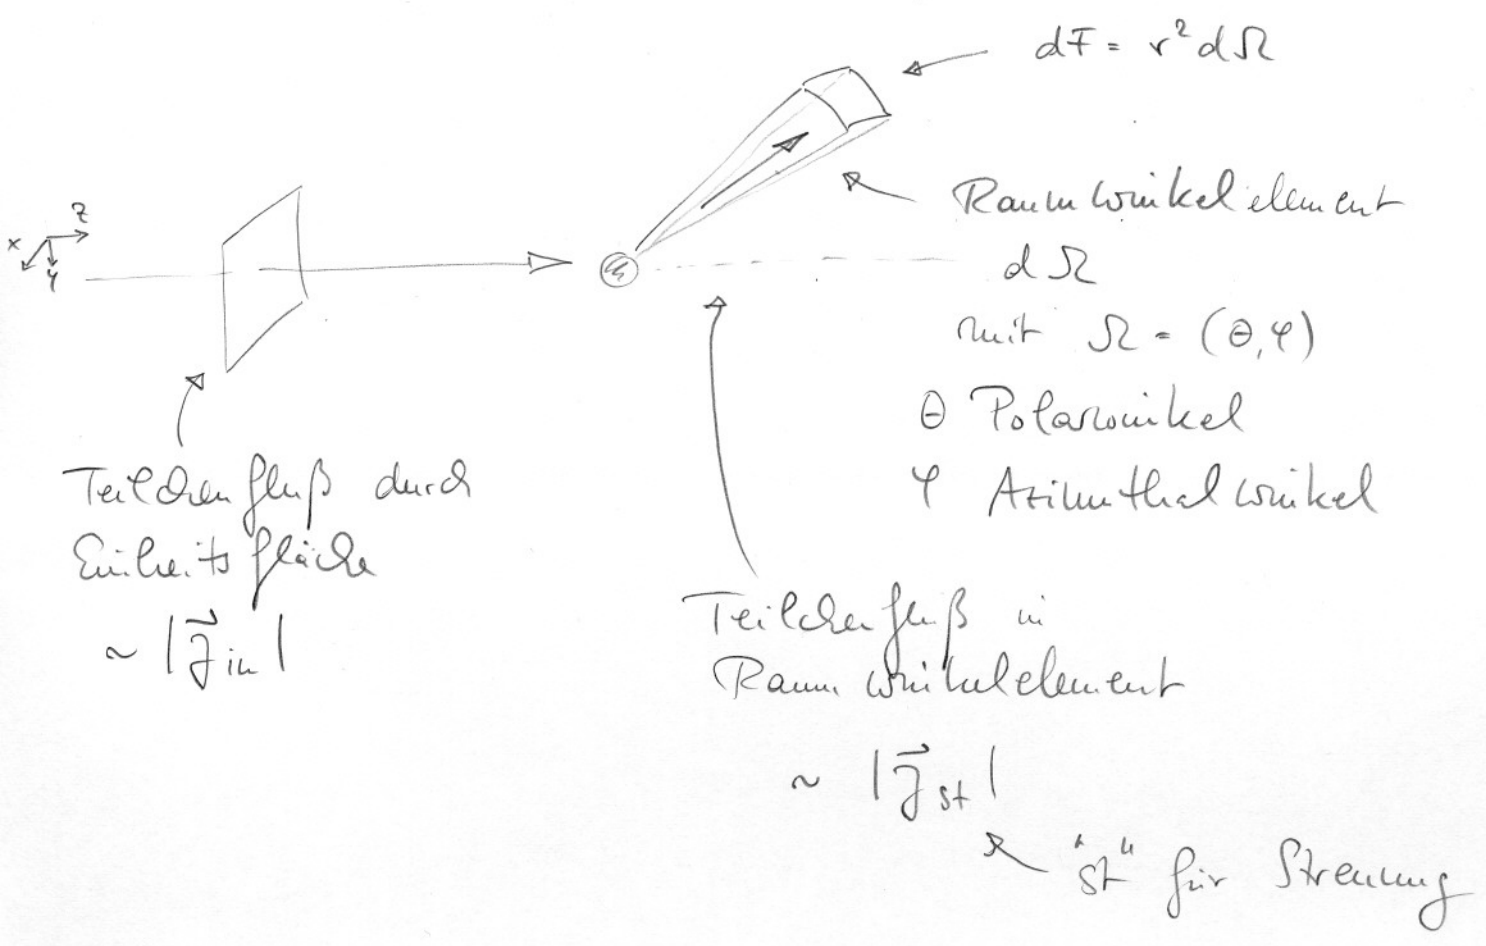 dF = r² dΩ
Raumwinkelelement
dΩ
mit Ω = (θ,φ)
θ Polarwinkel
φ Azimuthalwinkel
z
x
y
Teilchenfluß durch
Einheitsfläche
~ |j⃗in|
Teilchenfluß in
Raumwinkelelement
~ |j⃗st|
"st" für Streuung